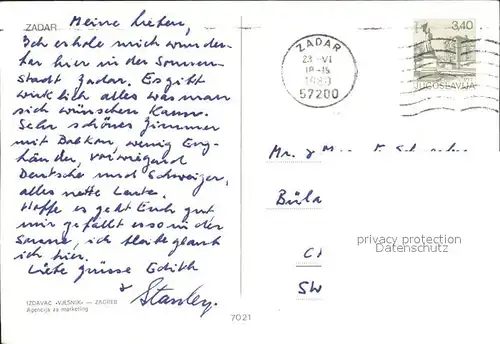 ZADAR
Meine Lieben,
Ich erhole mich wunder-
bar hier in der Sonnen-
stadt Zadar. Es gibt
wirklich alles was man
sich wünschen kann.
Sehr schönes Zimmer
mit Balkon, wenig Eng-
länder, vorwiegend
Deutsche und Schweizer,
alles nette Leute.
Hoffe es geht Euch gut
mir gefällt es so in der
Sonne, ich bleibe glaub
ich hier.
Liebe grüsse Edith
& Stanley.
IZDAVAČ »VJESNIK« — ZAGREB
Agencija za marketing
7021
ZADAR
23 -VI
1980
57200
3,40
JUGOSLAVIJA
Mr. & Mrs.
Büla
C
SW
privacy protection
www.oldthing.com